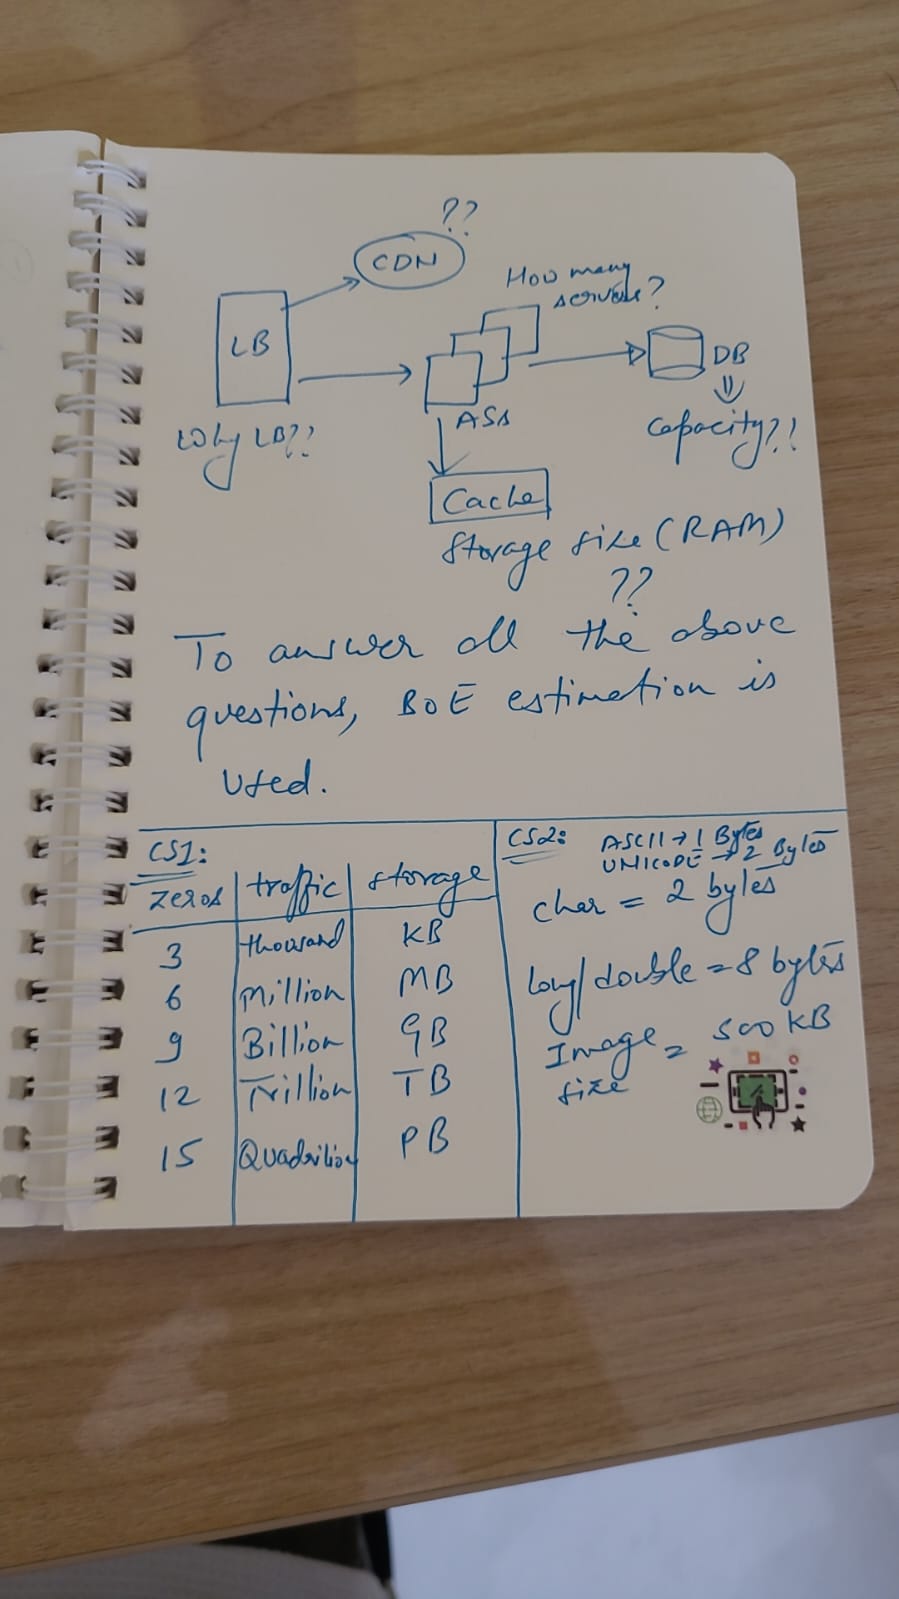 ??
CDN
How many
servers?
LB
DB
ASs
Why LB??
Capacity??
Cache
Storage size (RAM)
??
To answer all the above
questions, BOE estimation is
used.
CS1:
zeros traffic storage
3 thousand KB
6 Million MB
9 Billion GB
12 Trillion TB
15 Quadrilion PB
CS2: ASCII → 1 Bytes
UNICODE → 2 Bytes
char = 2 bytes
long/double = 8 bytes
Image = 500 KB
size